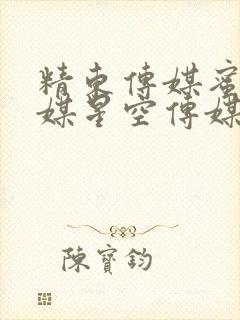 精東傳媒蜜
媒星空傳媒
陳寶鈞